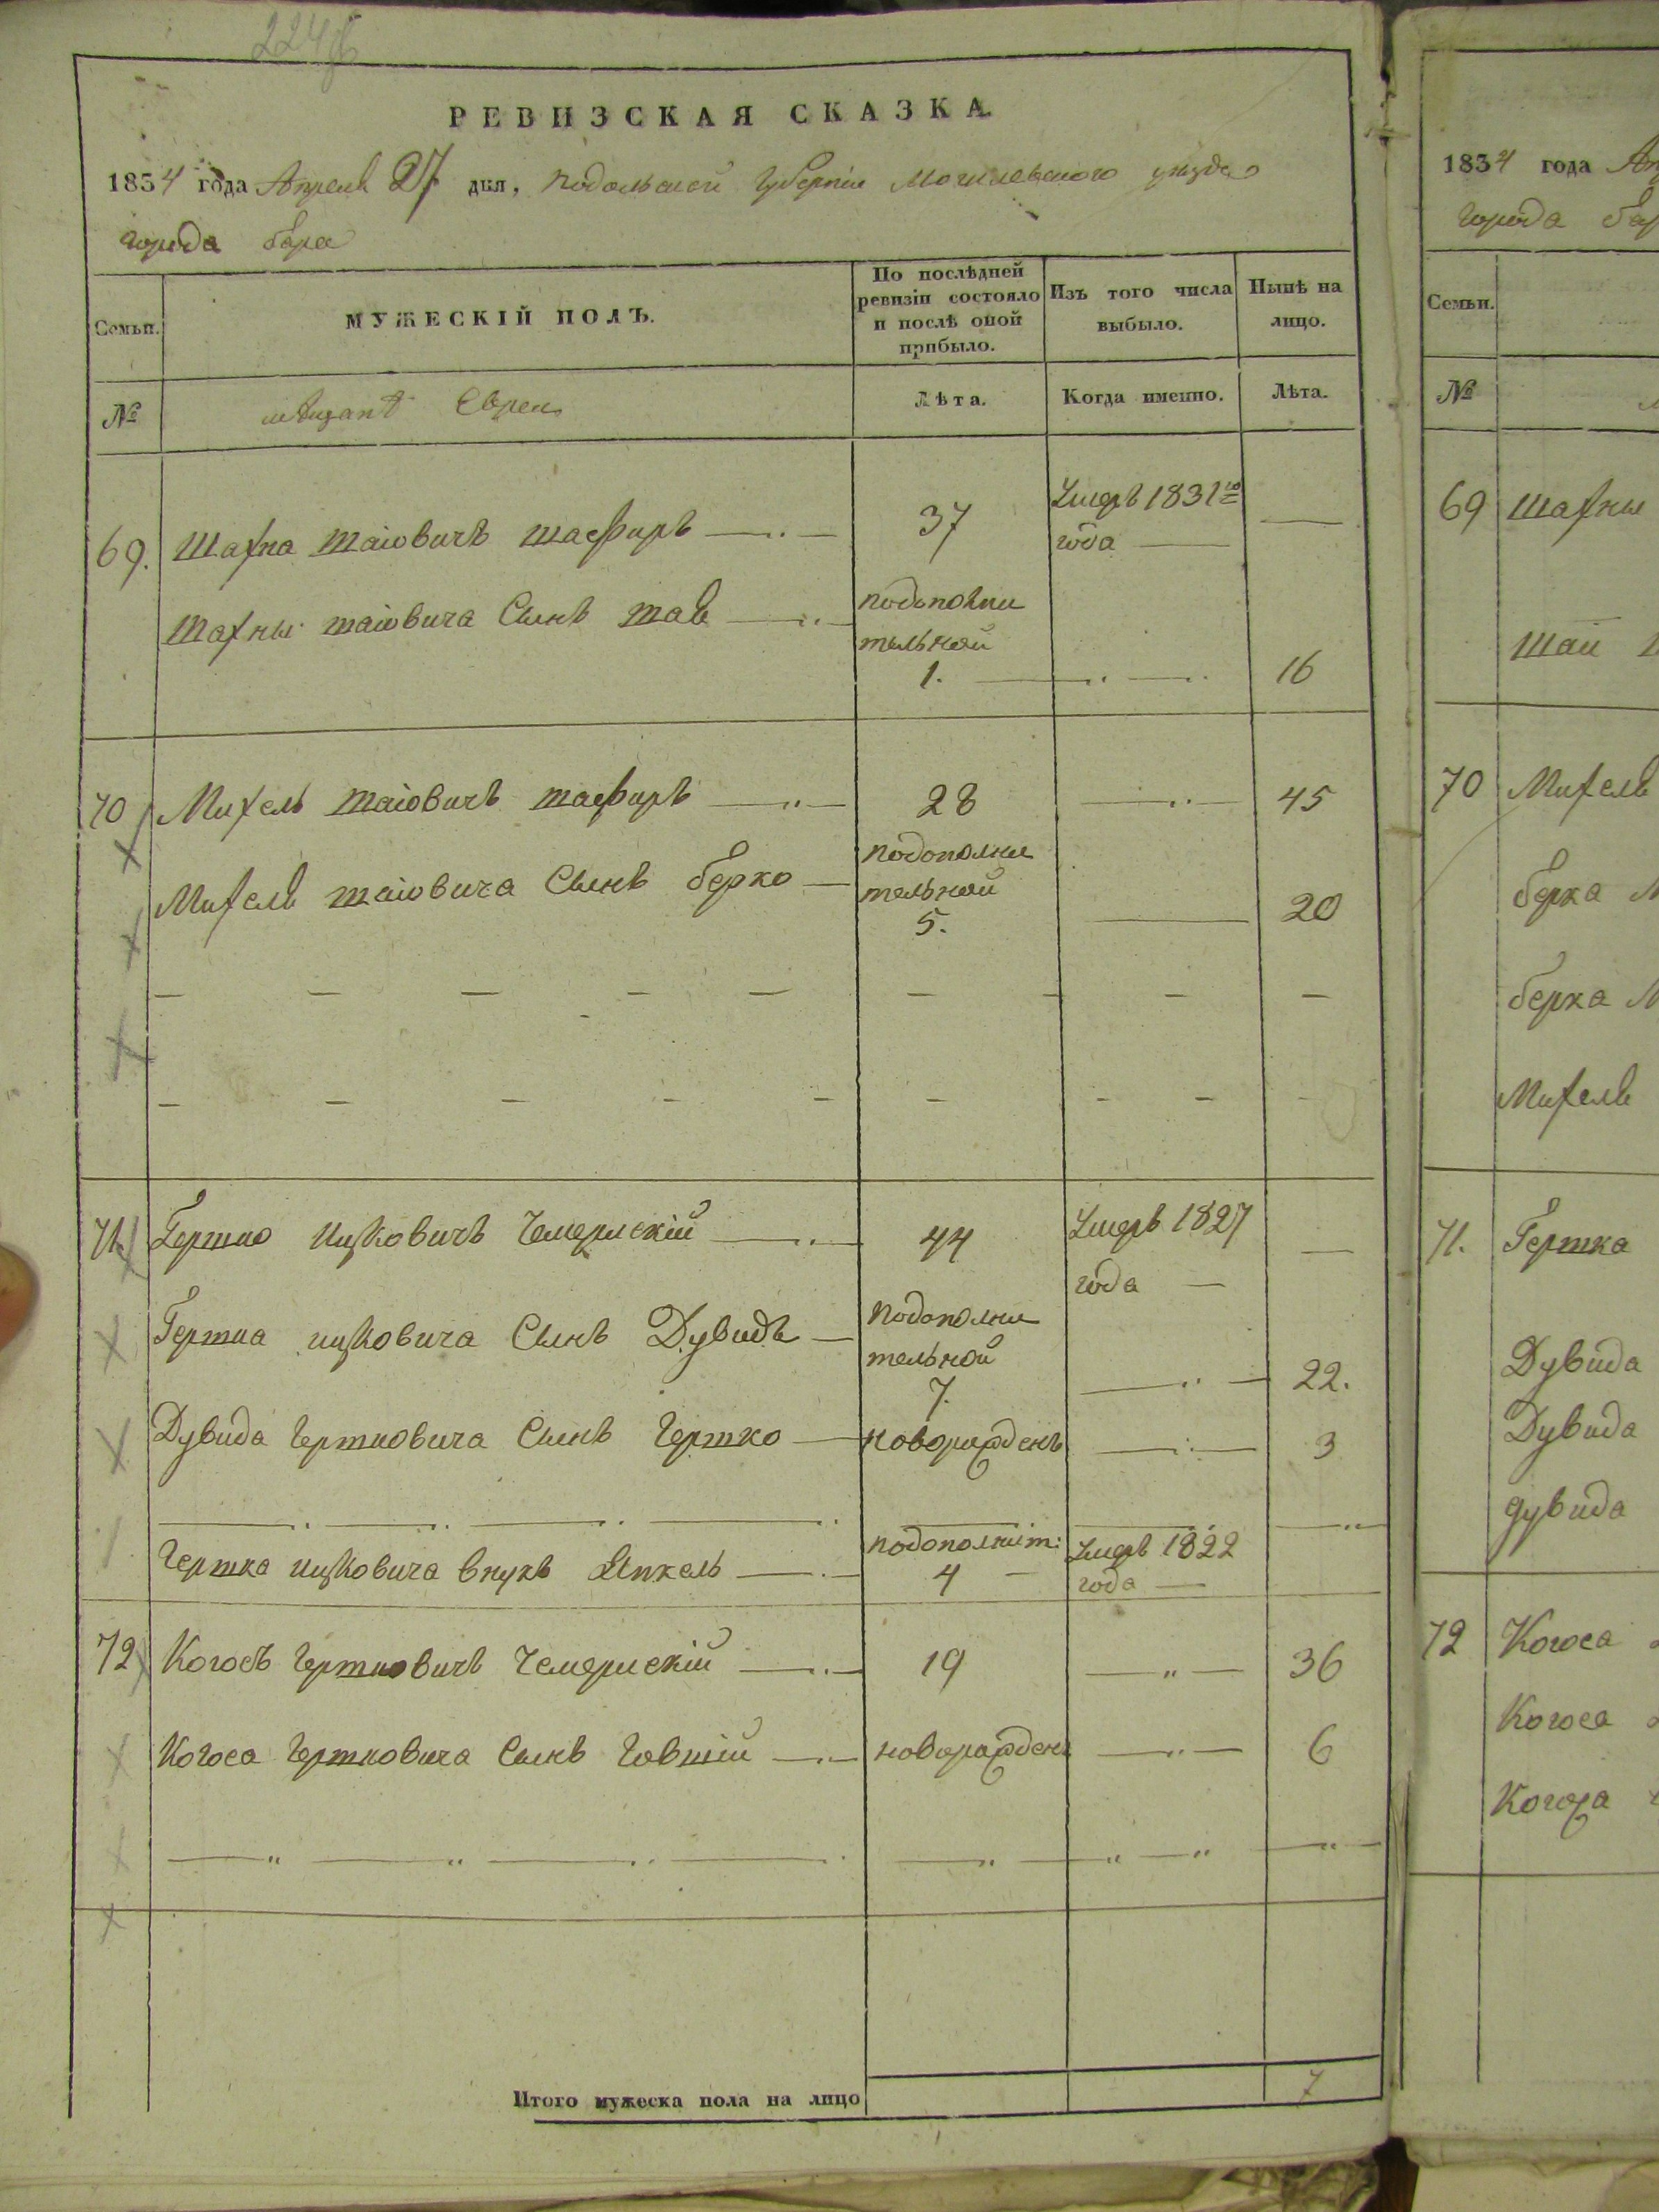 224об
РЕВИЗСКАЯ СКАЗКА.
1834 года Апреля 27 дня, Подольской Губерніи Могилевского уезда
города бара
Семьи.
МУЖЕСКІЙ ПОЛЪ.
По послѣдней ревизіи состояло и послѣ оной прибыло.
Изъ того числа выбыло.
Нынѣ на лицо.
№
мѣщанѣ Евреи
Лѣта.
Когда именно.
Лѣта.
69. Шахна шаіовичъ шафиръ 37 Умеръ 1831го года
Шахны шаіовича Сынъ шаѣ подополни тельной 1. 16
70 Михель шаіовичъ шафиръ 28 45
Михеля шаіовича Сынъ берко подополни тельной 5. 20
71. Гершко ицковичъ Чемерискій 44 Умеръ 1827 года
Гершка ицковича Сынъ Дувидъ подополни тельной 7. 22.
Дувида Гершковича Сынъ Гершко новорожденъ 3
Гершка ицковича внукъ Янкель подополнит: 4 Умеръ 1822 года
72 Когосъ Гершковичъ Чемерискій 19 36
Когоса Гершковича Сынъ Говшій новорожденъ 6
Итого мужеска пола на лицо 7
1834 года
города
Семьи.
№
69 Шахны
Шаи
70 Михеля
берка
берка
Михеля
71. Гершка
Дувида
Дувида
дувида
72 Когоса
Когоса
Когоса